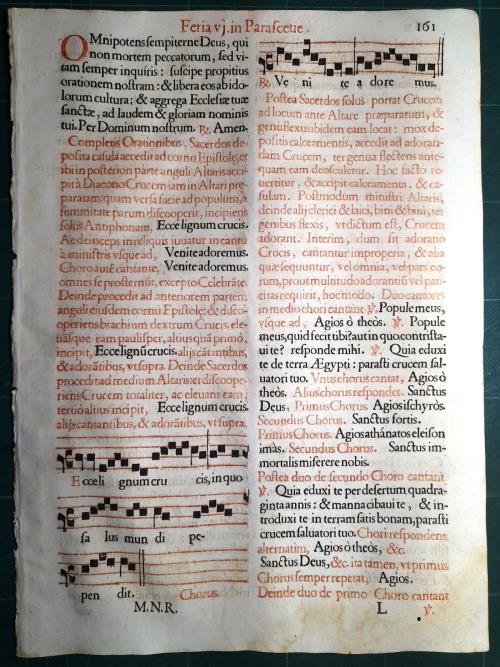 Feria vj. in Parasceue. 161
OMnipotens sempiterne Deus, qui
non mortem peccatorum, sed vi-
tam semper inquiris: suscipe propitius
orationem nostram: & libera eos ab ido-
lorum cultura; & aggrega Ecclesiæ tuæ
sanctæ, ad laudem & gloriam nominis
tui. Per Dominum nostrum. ℟. Amen.
Completis Orationibus, Sacerdos de-
posita casula accedit ad cornu Epistolæ, et
ibi in posteriori parte anguli Altaris acci-
pit à Diacono Crucem iam in Altari præ-
paratam: quam versa facie ad populum, à
summitate parum discooperit, incipiens
solus Antiphonam, Ecce lignum crucis.
Ac deinceps in reliquis iuuatur in cantu
à ministris vsque ad, Venite adoremus.
Choro autē cantante, Venite adoremus.
omnes se prosternūt, excepto Celebrāte.
Deinde procedit ad anteriorem partem
anguli eiusdem cornu Epistolę: & disco-
operiens brachium dextrum Crucis, ele-
uāsque eam paulisper, altius quā primò,
incipit, Ecce lignum crucis. alijs cātātibus,
& adorātibus, vt supra. Deinde Sacerdos
procedit ad medium Altaris: et discoope-
riens Crucem totaliter, ac eleuans eam,
tertiò altius incipit, Ecce lignum crucis.
alijs cantantibus, & adorātibus, vt supra.
Ecce li gnum cru cis, in quo
sa lus mun di pe-
pen dit. Chorus.
M.N.R.
℟. Ve ni te a dore mus.
Postea Sacerdos solus portat Crucem
ad locum ante Altare præparatum, &
genuflexus ibidem eam locat: mox de-
positis calceamentis, accedit ad adoran-
dam Crucem, ter genua flectens ante-
quam eam deosculetur. Hoc facto re-
uertitur, & accipit calceamenta, & ca-
sulam. Postmodum ministri Altaris,
deinde alij clerici & laici, bini & bini, ter
genibus flexis, vt dictum est, Crucem
adorant. Interim, dum fit adoratio
Crucis, cantantur improperia, & alia
quæ sequuntur, vel omnia, vel pars eo-
rum, prout multitudo adorantiū vel pau-
citas requirit, hoc modo. Duo cantores
in medio chori cantant ℣. Popule meus,
vsque ad, Agios ò theòs. ℣. Popule
meus, quid feci tibi? aut in quo contrista-
ui te? responde mihi. ℣. Quia eduxi
te de terra Ægypti: parasti crucem sal-
uatori tuo. Vnus chorus cantat, Agios ò
theòs. Alius chorus respondet. Sanctus
Deus. Primus Chorus. Agios ischyròs.
Secundus Chorus. Sanctus fortis.
Primus Chorus. Agios athánatos eleison
imàs. Secundus Chorus. Sanctus im-
mortalis miserere nobis.
Postea duo de secundo Choro cantant
℣. Quia eduxi te per desertum quadra-
ginta annis: & manna cibaui te, & in-
troduxi te in terram satis bonam, parasti
crucem saluatori tuo. Chori respondent
alternatim, Agios ò theòs, &c.
Sanctus Deus, &c. ita tamen, vt primus
Chorus semper repetat, Agios.
Deinde duo de primo Choro cantant
L ℣.